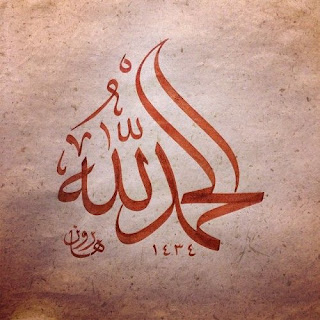 الحمد لله
هارون ١٤٣٤